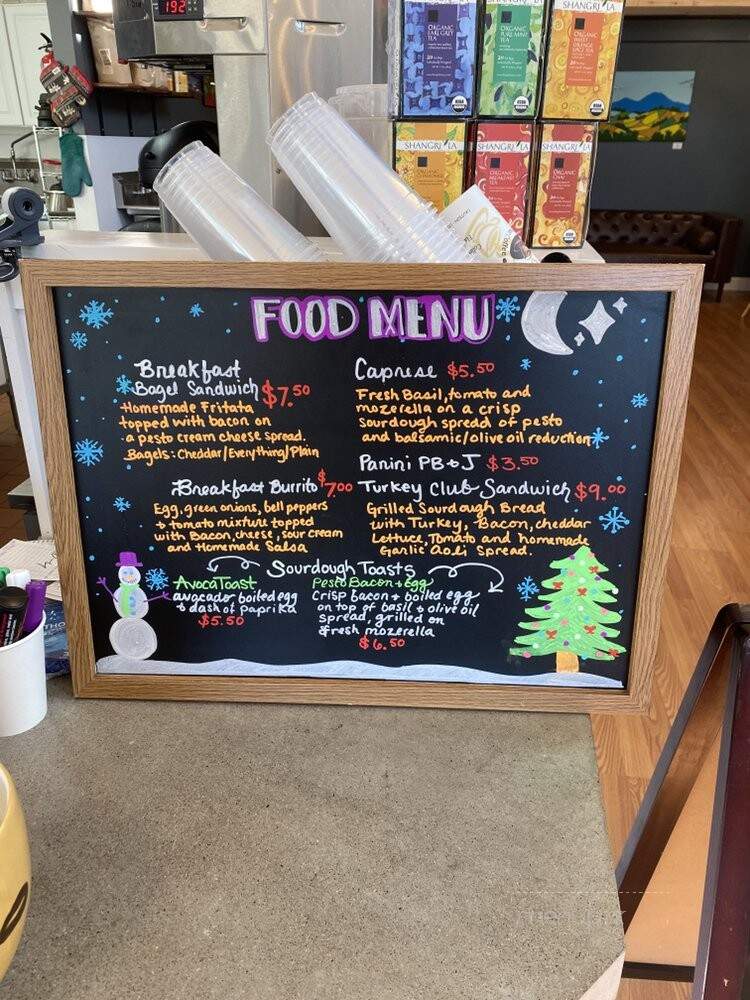 192
SHANGRI LA
ORGANIC
EARL GREY
TEA
SHANGRI LA
ORGANIC
PURE MINT
TEA
SHANGRI LA
ORGANIC
SWEET
ORANGE
SPICE TEA
SHANGRI LA
SHANGRI LA
ORGANIC
BREAKFAST
TEA
SHANGRI LA
ORGANIC
CHAI
FOOD MENU
Breakfast
Bagel Sandwich $7.50
Homemade Fritata
topped with bacon on
a pesto cream cheese spread.
Bagels: Cheddar/Everything/Plain
Breakfast Burrito $7.00
Egg, green onions, bell peppers
+ tomato mixture topped
with Bacon, cheese, sour cream
and Homemade Salsa
Caprese $5.50
Fresh Basil, tomato and
mozerella on a crisp
sourdough spread of pesto
and balsamic/olive oil reduction
Panini PB+J $3.50
Turkey Club Sandwich $9.00
Grilled Sourdough Bread
with Turkey, Bacon, cheddar
Lettuce, Tomato and homemade
Garlic Aoli Spread.
Sourdough Toasts
AvocaToast
avocado, boiled egg
+ dash of paprika
$5.50
Pesto Bacon + egg
Crisp bacon + boiled egg
on top of basil + olive oil
spread, grilled on
fresh mozerella
$6.50